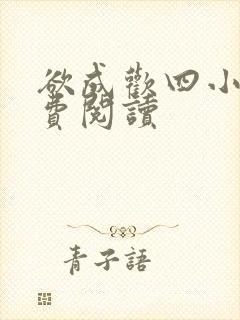 欲成歡四小
費閱讀
青子語